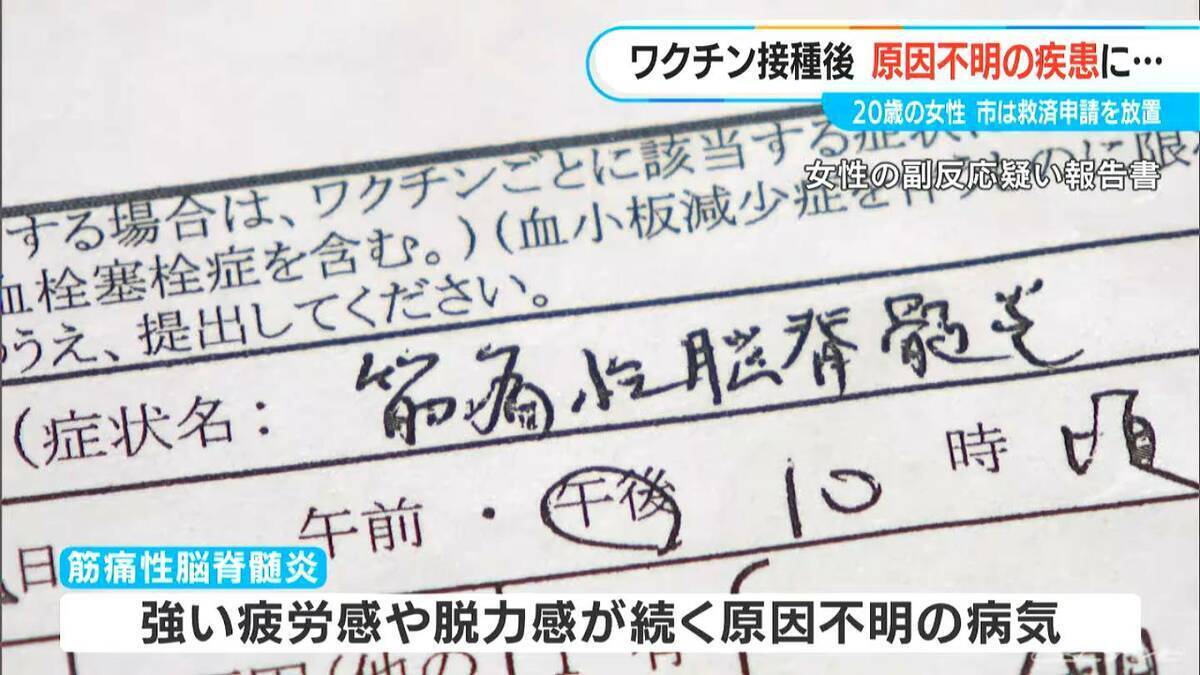 ワクチン接種後 原因不明の疾患に…
20歳の女性 市は救済申請を放置
女性の副反応疑い報告書
する場合は、ワクチンごとに該当する症状
血栓塞栓症を含む。)(血小板減少症を伴うものに限
うえ、提出してください。
(症状名: 筋痛性脳脊髄炎
午前・午後 10 時 頃
日
筋痛性脳脊髄炎
強い疲労感や脱力感が続く原因不明の病気